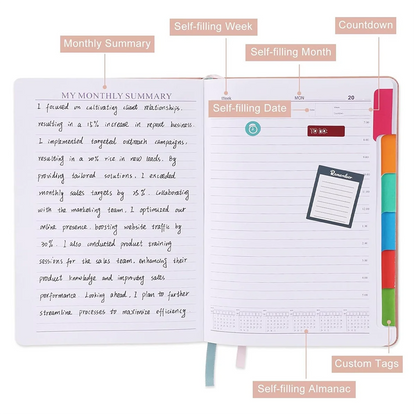 Self-filling Week
Countdown
Monthly Summary
Self-filling Month
MY MONTHLY SUMMARY
Week
MON
20
Self-filling Date
I focused on cultivating client relationships,
resulting in a 15% increase in repeat business.
I implemented targeted outreach campaigns,
resulting in a 20% rise in new leads. By
providing tailored solutions, I exceeded
monthly sales targets by 25%. Collaborating
with the marketing team, I optimized our
online presence, boosting website traffic by
30%. I also conducted product training
sessions for the sales team, enhancing their
product knowledge and improving sales
performance. Looking ahead, I plan to further
streamline processes to maximize efficiency
Remember
Custom Tags
Self-filling Almanac